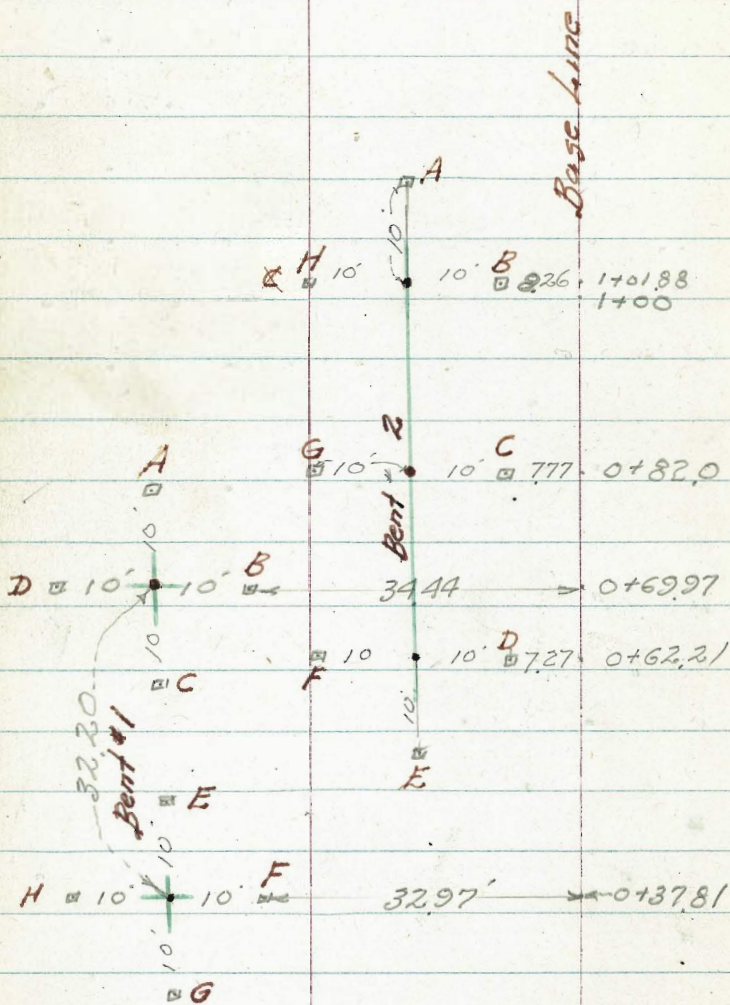 Base Line
A
10'
H 10' 10' B 8.26 1+01.88
1+00
Bent 2
G 10' 10' C 7.77 0+82.0
A
10'
D 10' 10' B 34.44 0+69.97
10
C
F 10 10' D 7.27 0+62.21
10'
E
32.20
Bent #1
E
10'
H 10' 10' F 32.97' 0+37.81
10'
G